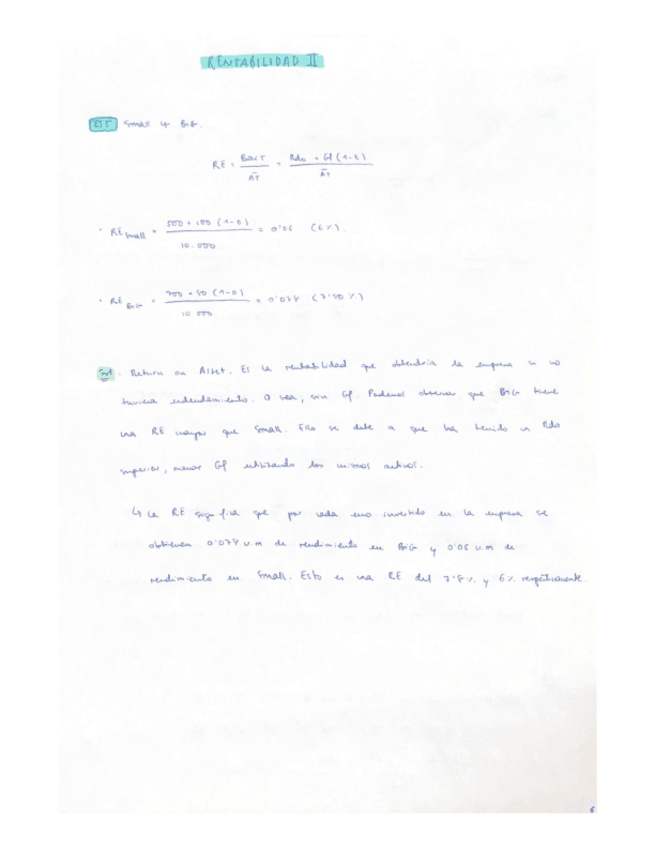 RENTABILIDAD II
EJ 5 Small y BIG.
RE = BAIT / AT = Rdo + Gf (1-t) / AT
• RE Small = 500 + 100 (1-0) / 10.000 = 0'06 (6%).
• RE BIG = 700 + 80 (1-0) / 10.000 = 0'078 (7'80%)
Return on Asset. Es la rentabilidad que obtendría la empresa si no
tuviera endeudamiento. O sea, sin Gf. Podemos observar que BIG tiene
una RE mayor que Small. Ello se debe a que ha tenido un Rdo
superior, menor Gf utilizando los mismos activos.
↳ La RE significa que por cada euro invertido en la empresa se
obtienen 0'078 u.m de rendimiento en BIG y 0'06 u.m de
rendimiento en Small. Esto es una RE del 7'8% y 6% respectivamente.
6